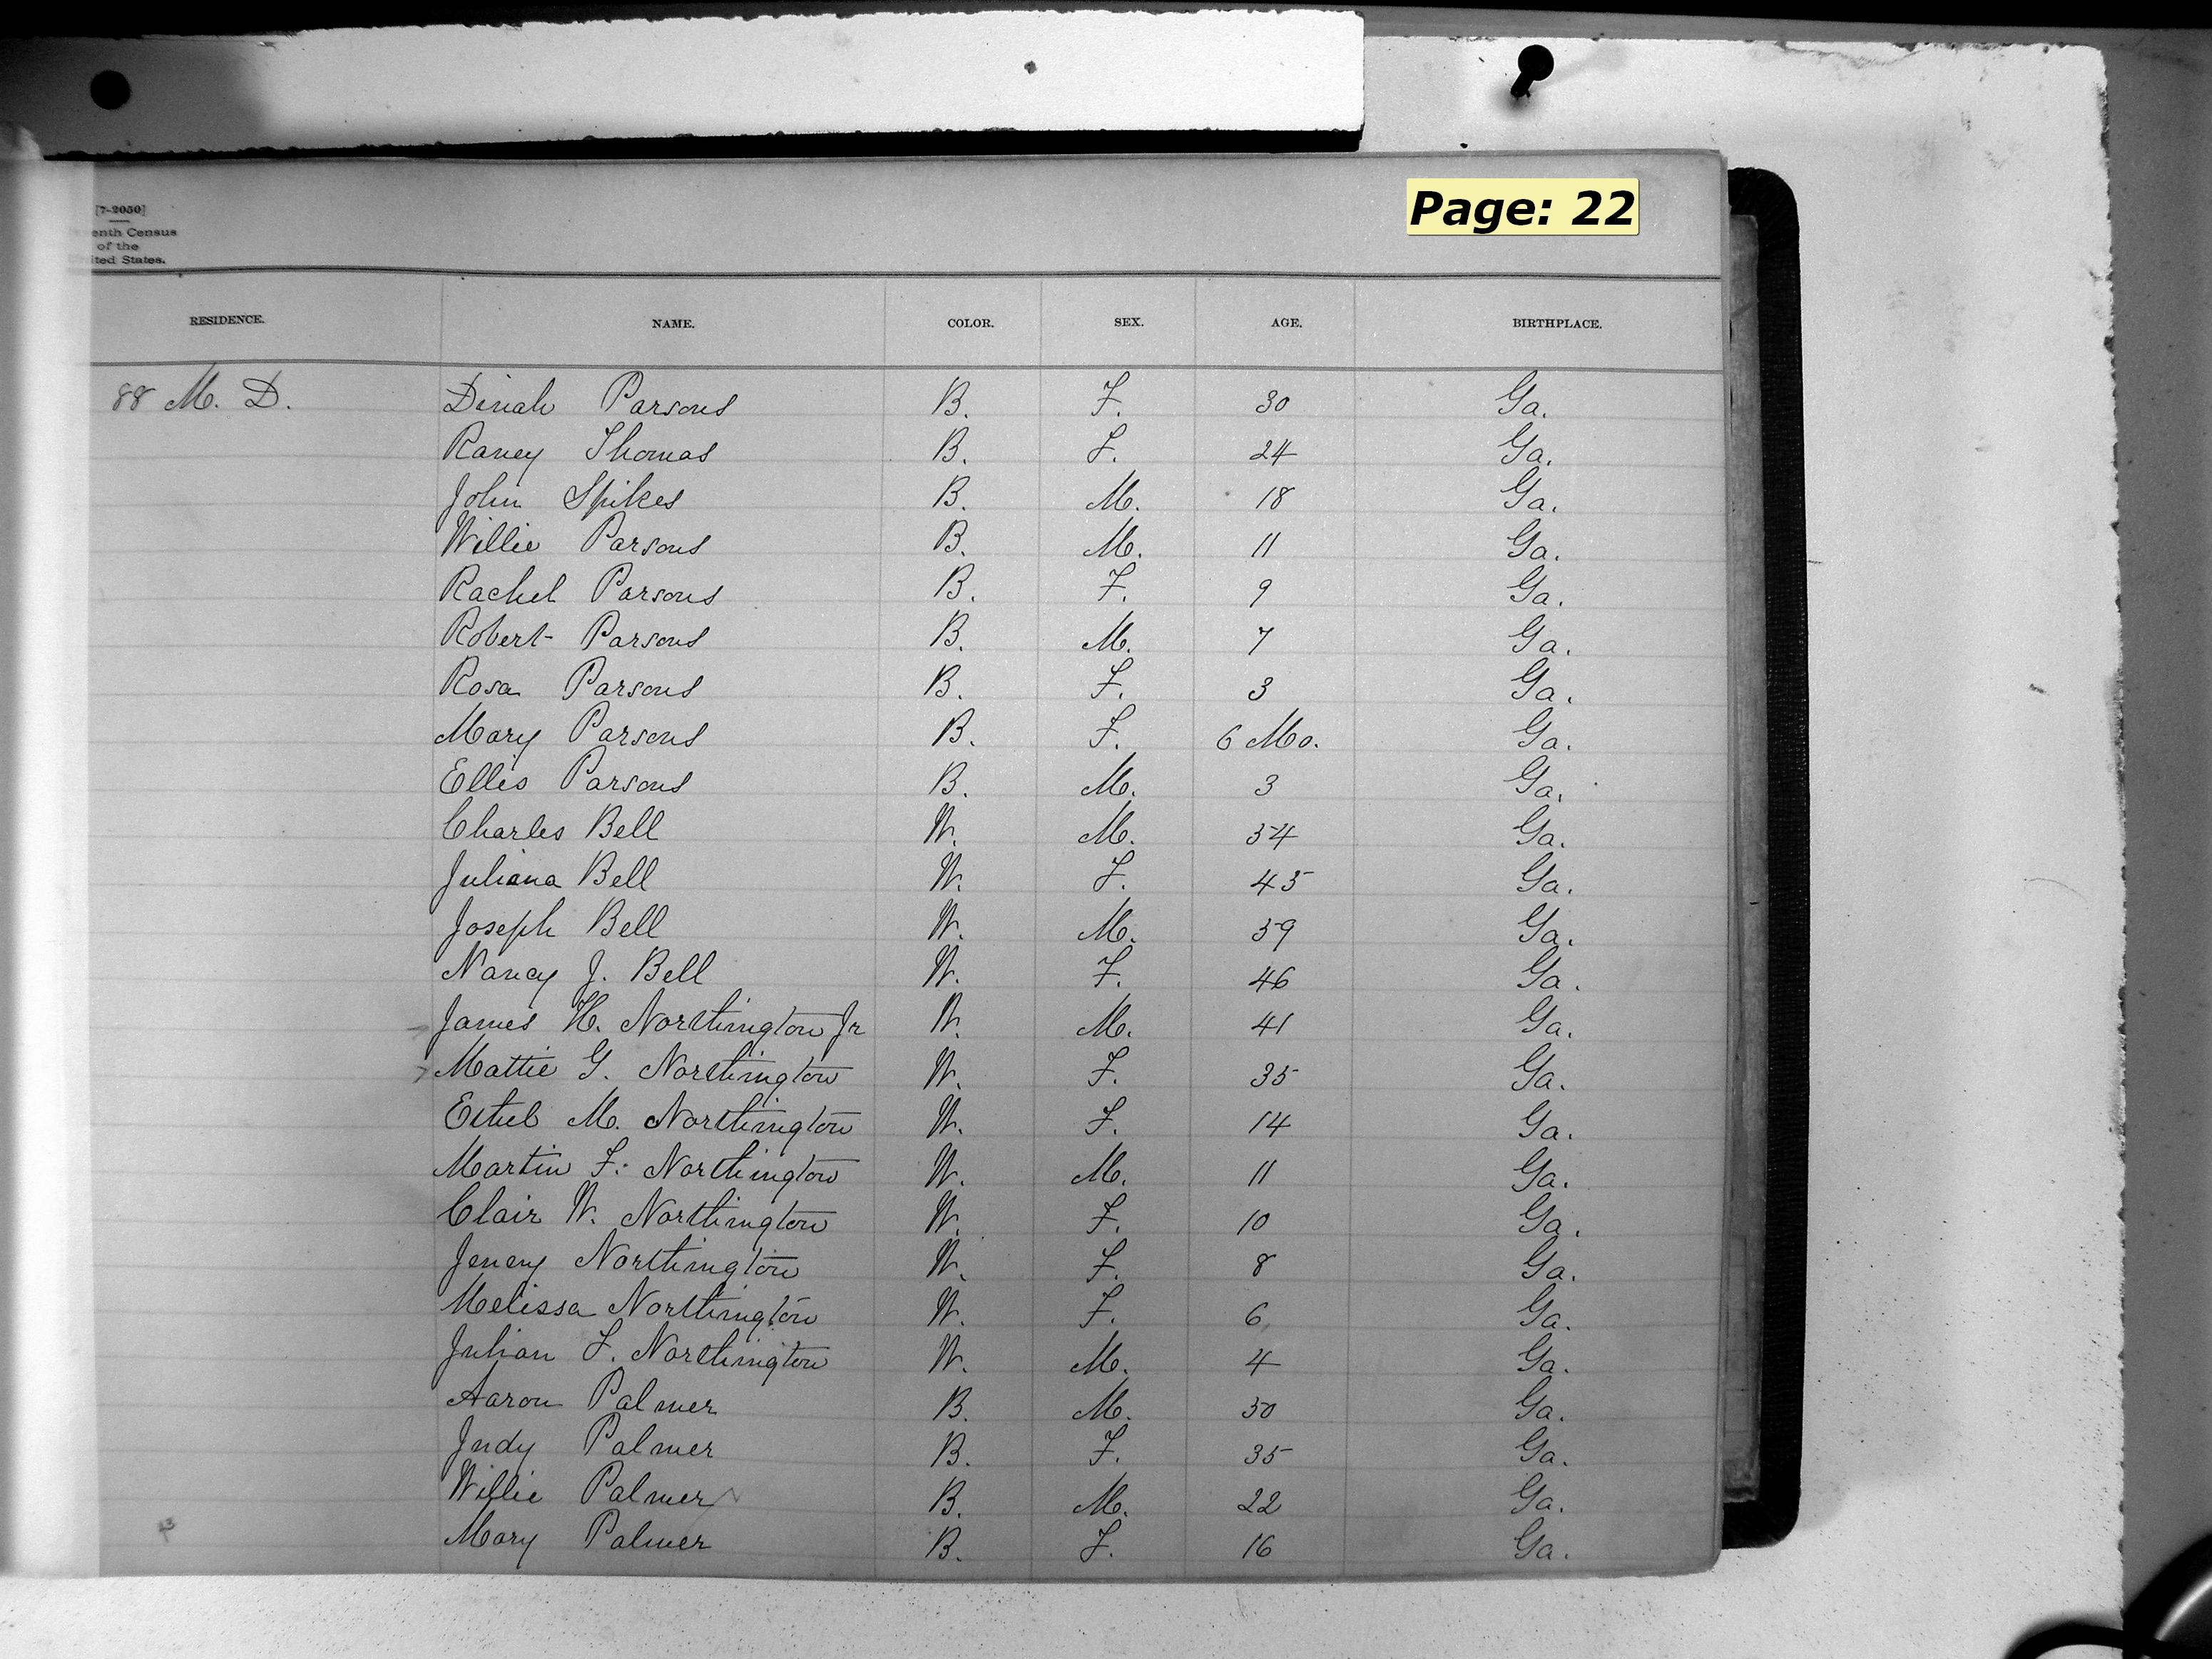 Page: 22
[7-2050]
enth Census
of the
ited States.
RESIDENCE. NAME. COLOR. SEX. AGE. BIRTHPLACE.
88 M. D. Dinah Parsons B. F. 30 Ga.
Raney Thomas B. F. 24 Ga.
John Spikes B. M. 18 Ga.
Willie Parsons B. M. 11 Ga.
Rachel Parsons B. F. 9 Ga.
Robert Parsons B. M. 7 Ga.
Rosa Parsons B. F. 3 Ga.
Mary Parsons B. F. 6 Mo. Ga.
Ellis Parsons B. M. 3 Ga.
Charles Bell W. M. 54 Ga.
Juliana Bell W. F. 45 Ga.
Joseph Bell W. M. 59 Ga.
Nancy J. Bell W. F. 46 Ga.
James H. Northington Jr W. M. 41 Ga.
Mattie G. Northington W. F. 35 Ga.
Ethel M. Northington W. F. 14 Ga.
Martin F. Northington W. M. 11 Ga.
Clair W. Northington W. F. 10 Ga.
Jeney Northington W. F. 8 Ga.
Melissa Northington W. F. 6 Ga.
Julian F. Northington W. M. 4 Ga.
Aaron Palmer B. M. 50 Ga.
Judy Palmer B. F. 35 Ga.
Willie Palmer B. M. 22 Ga.
Mary Palmer B. F. 16 Ga.